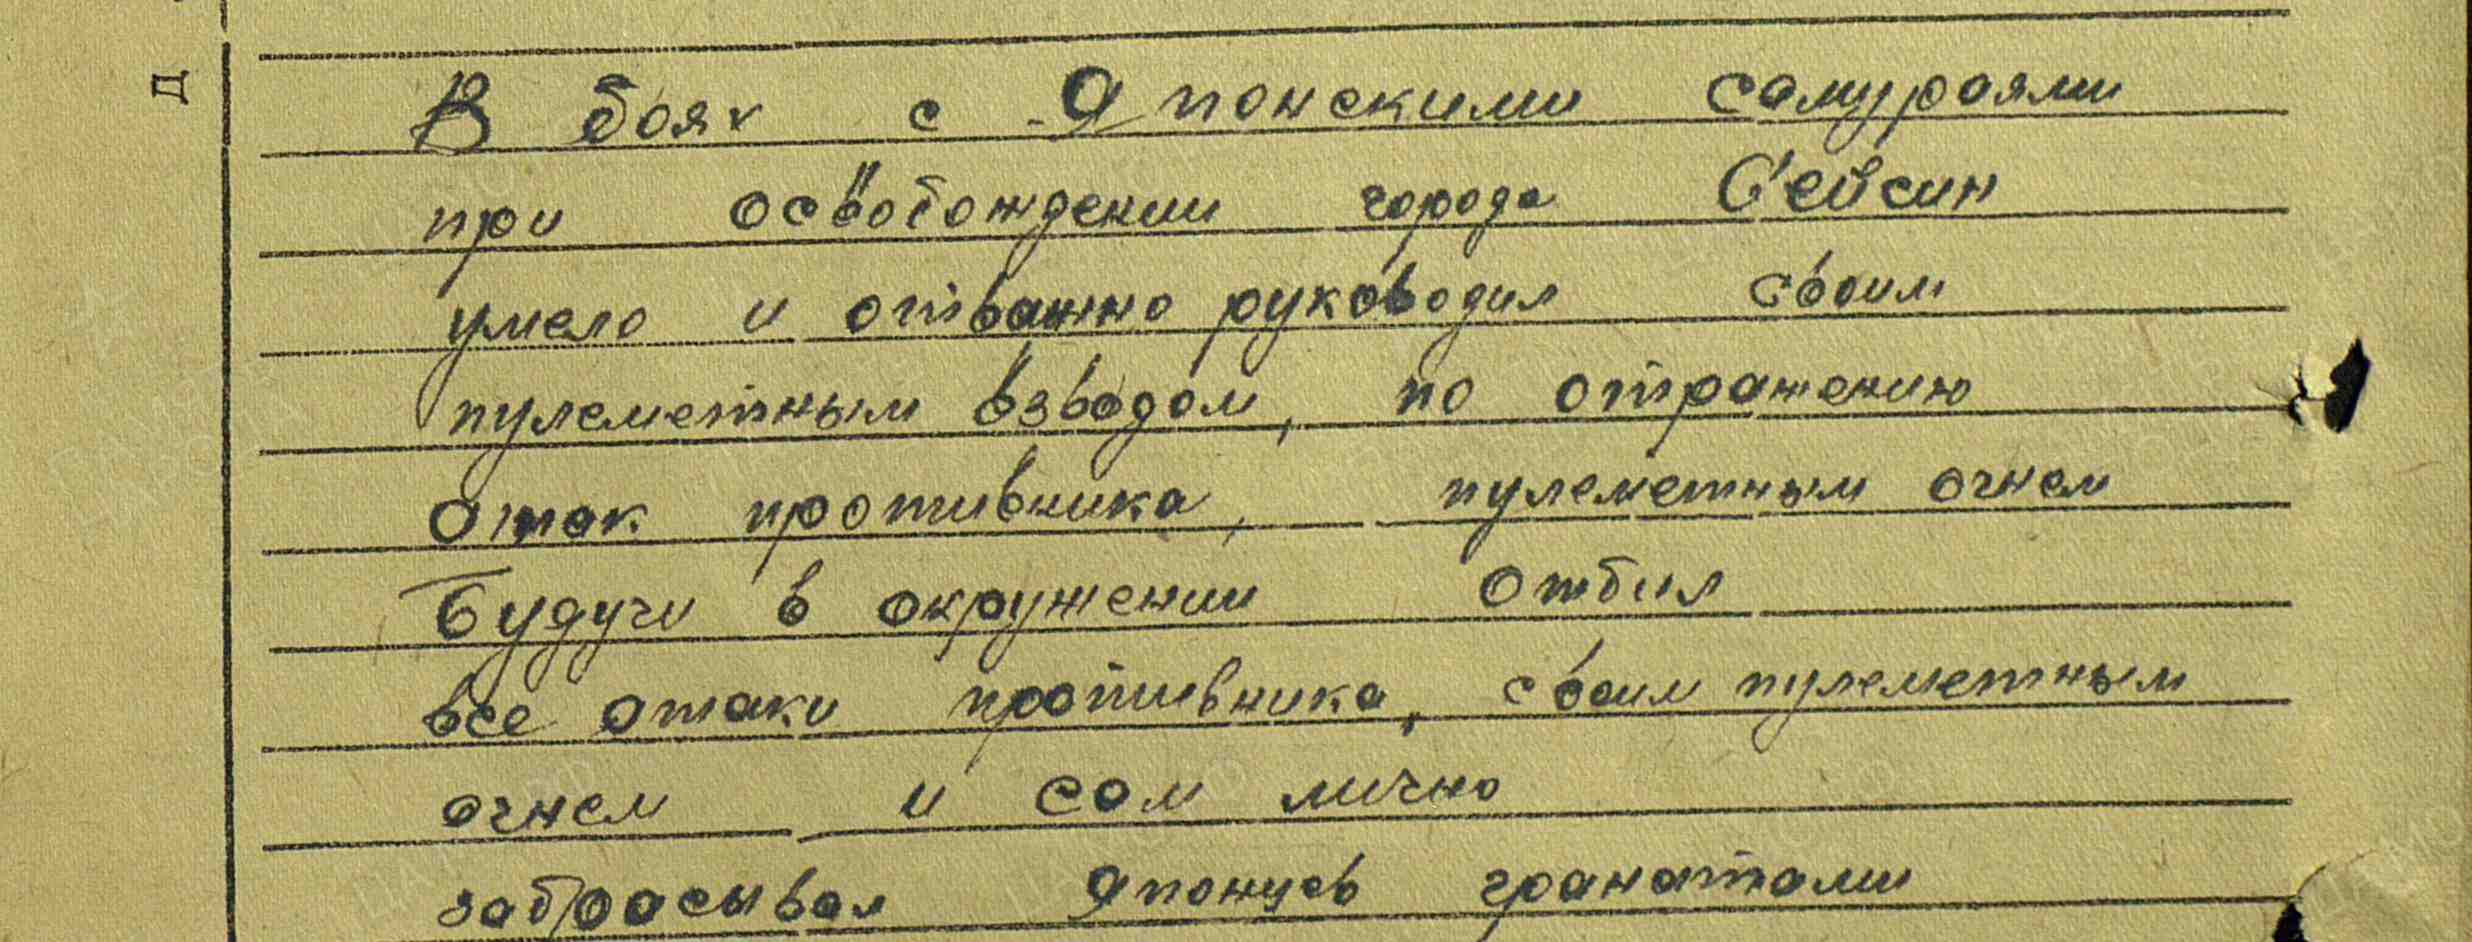 Д
В боях с Японскими самураями
при освобождении города Сейсин
умело и отважно руководил своим
пулеметным взводом, по отражению
атак противника, пулеметным огнем
Будучи в окружении отбил
все атаки противника, своим пулеметным
огнем и сам лично
забрасывал Японцев гранатами